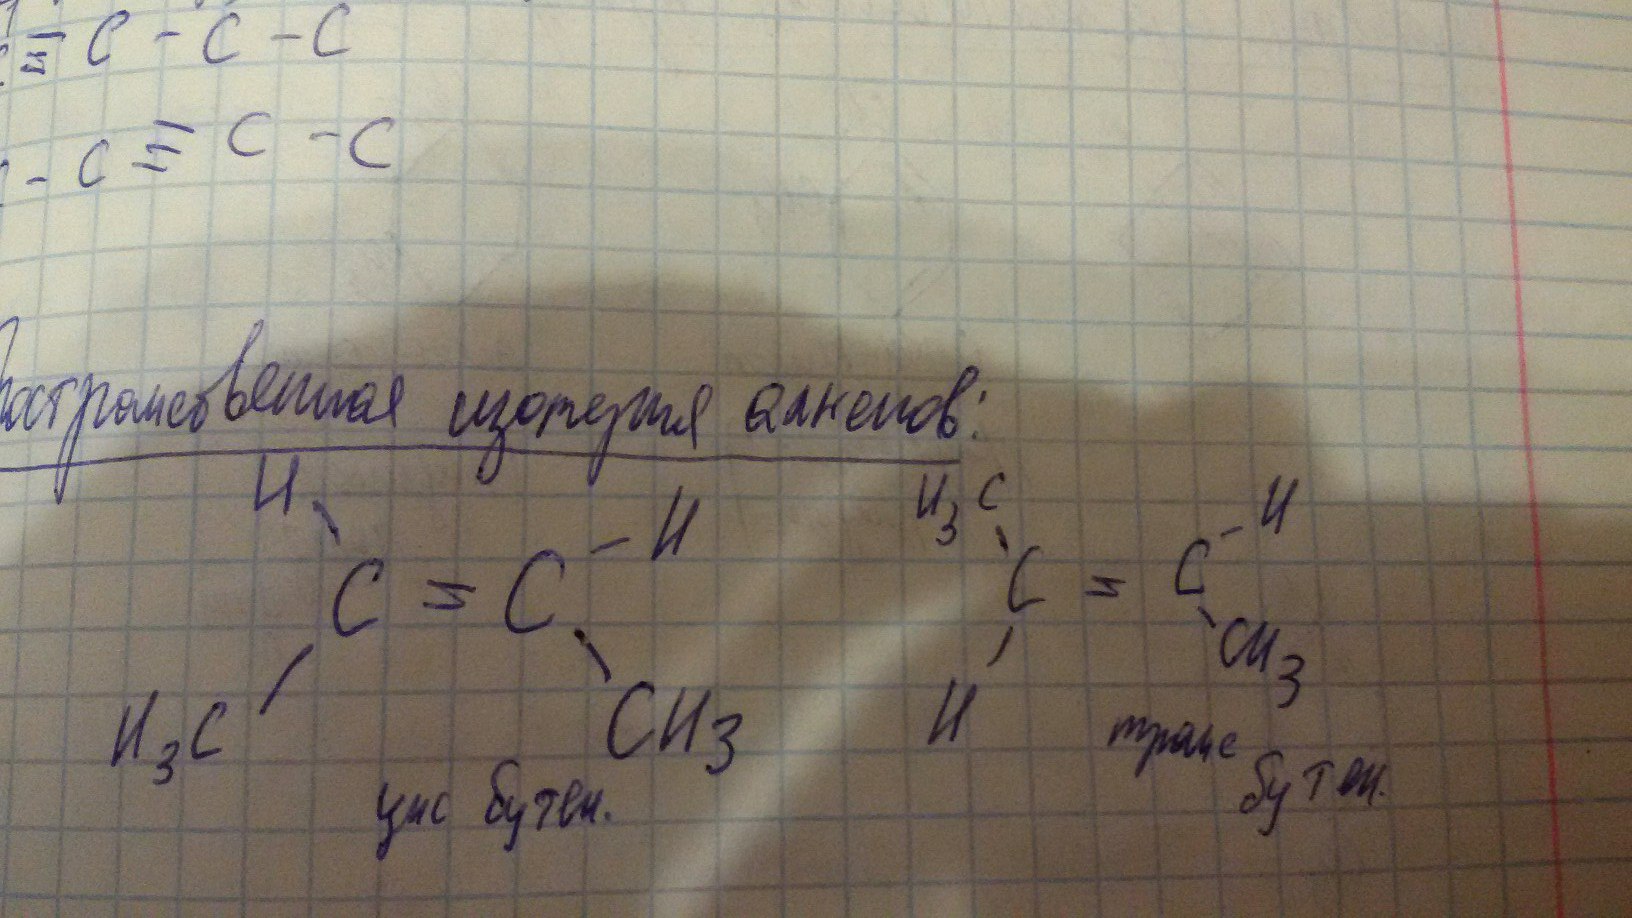 ≡ C - C - C
- C ≡ C - C
Пространственная изомерия алкенов:
H H
C = C
H₃C CH₃
цис бутен.
H₃C H
C = C
H CH₃
транс
бутен.